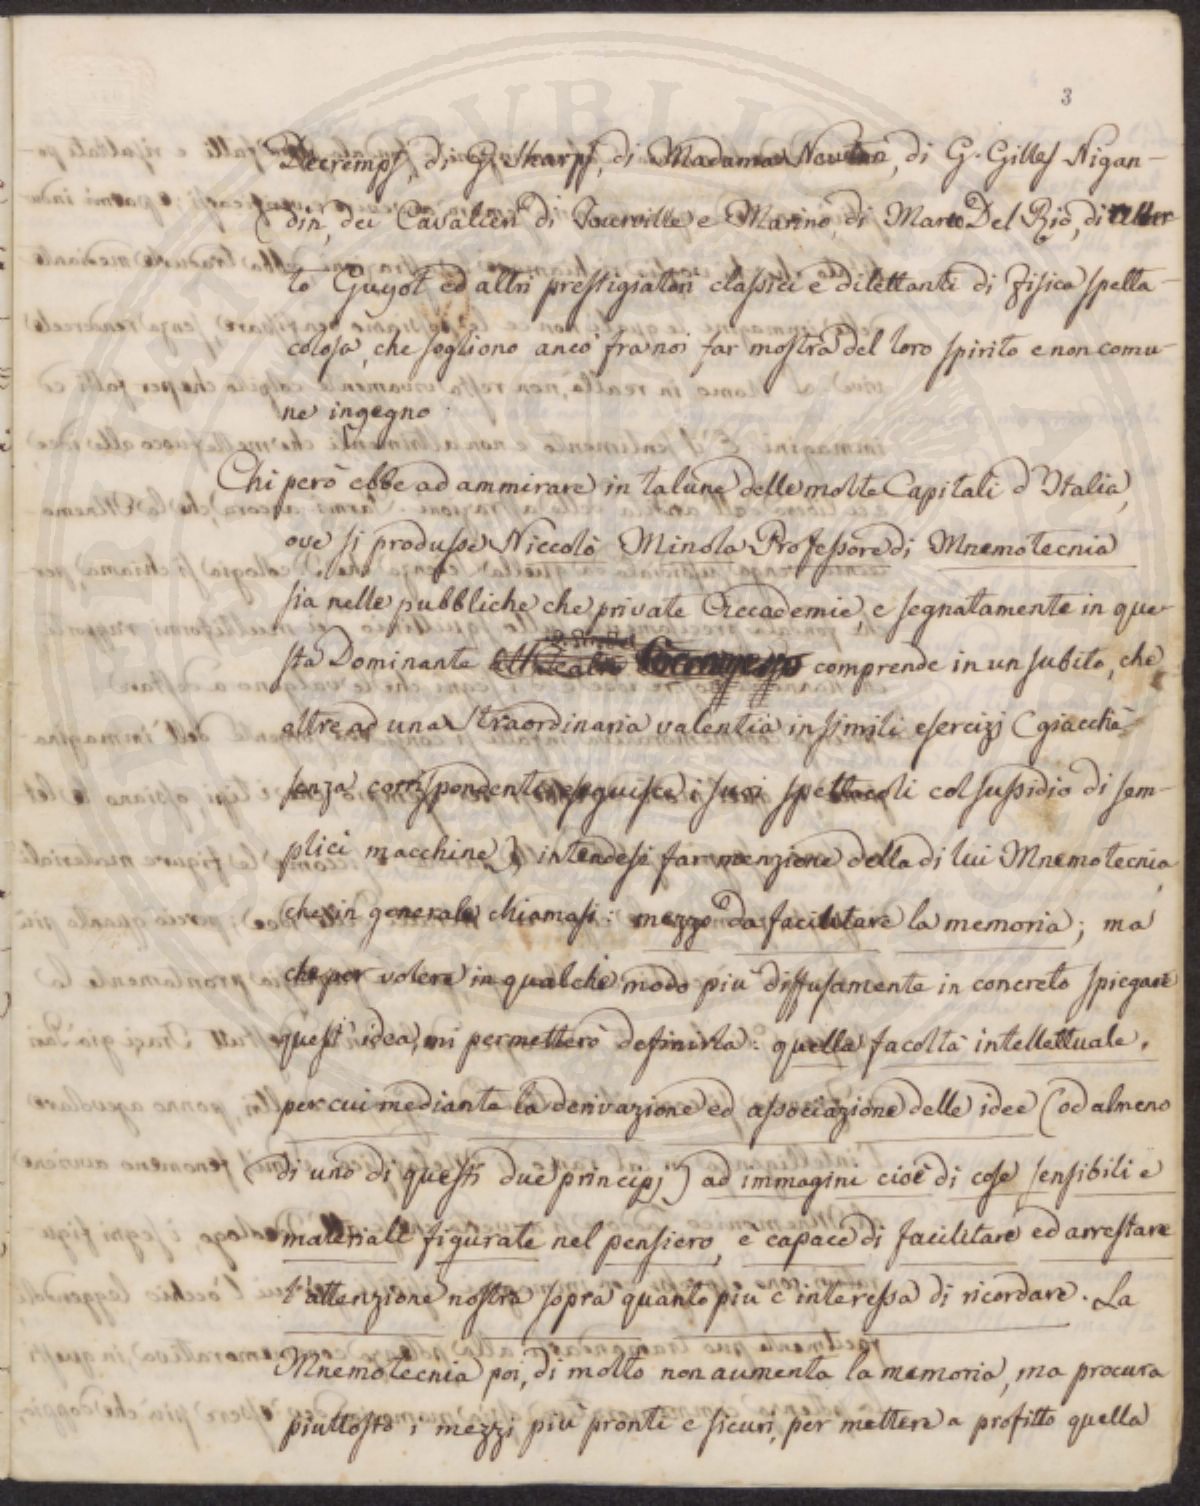 3
Decremps, di G. Sharpf, di Madama Newton, di G. Gilles Nigan-
din, dei Cavalieri di Tourville e Marino, di Marco Del Riò, di Alber-
to Guyot ed altri prestigiatori classici e dilettanti di fisica spetta-
colosa, che sogliono anco fra noi far mostra del loro spirito e non comu-
ne ingegno.
Chi però ebbe ad ammirare in talune delle molte Capitali d'Italia,
ove si produsse Niccolò Minola Professore di Mnemotecnia
sia nelle pubbliche che private Accademie, e segnatamente in que-
sta Dominante comprende in un subito, che
oltre ad una straordinaria valentia in simili esercizj (giacchè
senza corrispondenti eseguisce i suoi spettacoli col sussidio di sem-
plici macchine) intendesi far menzione della di lui Mnemotecnia,
che in generale chiamasi: mezzo da facilitare la memoria; ma
che per volere in qualche modo più diffusamente in concreto spiegare
quest' idea, mi permetterò definirla: quella facoltà intellettuale,
per cui mediante la derivazione ed associazione delle idee (od almeno
di uno di questi due principj) ad immagini cioè di cose sensibili e
materiali figurate nel pensiero, è capace di facilitare ed arrestare
l'attenzione nostra sopra quanto più c'interessa di ricordare. La
Mnemotecnia poi, di molto non aumenta la memoria, ma procura
piuttosto i mezzi più pronti e sicuri, per mettere a profitto quella